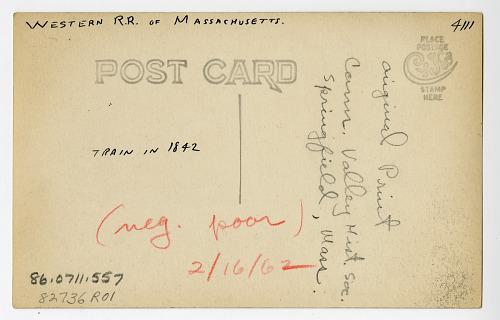 WESTERN R.R. OF MASSACHUSETTS.
4111
POST CARD
PLACE
POSTAGE
STAMP
HERE
TRAIN IN 1842
original Print
Conn. Valley Hist Soc.
Springfield, Mass.
(neg. poor)
2/16/62
86.0711.557
82736 R01